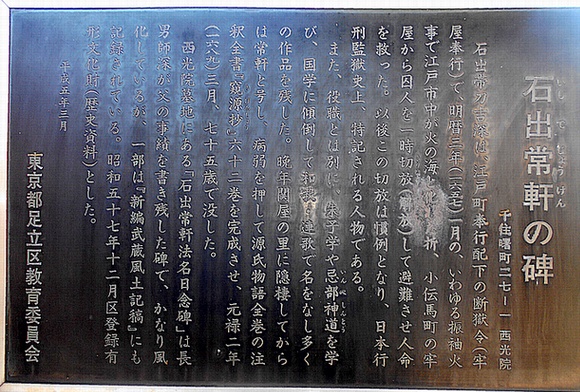 石出常軒の碑
いしでじょうけん
千住曙町二七ー一 西光院
石出帯刀吉深は、江戸町奉行配下の断獄令(牢
屋奉行)で、明暦三年(一六五七)一月の、いわゆる振袖火
事で江戸市中が火の海と化した折、小伝馬町の牢
屋から囚人を一時切放(解放)して避難させ人命
を救った。以後この切放は慣例となり、日本行
刑監獄史上、特記される人物である。
また、役職とは別に、朱子学や忌部神道を学
いんべしんとう
び、国学に傾倒して和歌、連歌で名をなし多く
の作品を残した。晩年関屋の里に隠棲してから
は常軒と号し、病弱を押して源氏物語全巻の注
釈全書『窺源抄』六十二巻を完成させ、元禄二年
(一六八九)三月、七十五歳で没した。
西光院墓地にある「石出常軒法名日念碑」は長
男師深が父の事績を書き残した碑で、かなり風
化しているが、一部は『新編武蔵風土記稿』にも
記録されている。昭和五十七年十二月区登録有
形文化財(歴史資料)とした。
平成五年三月
東京都足立区教育委員会